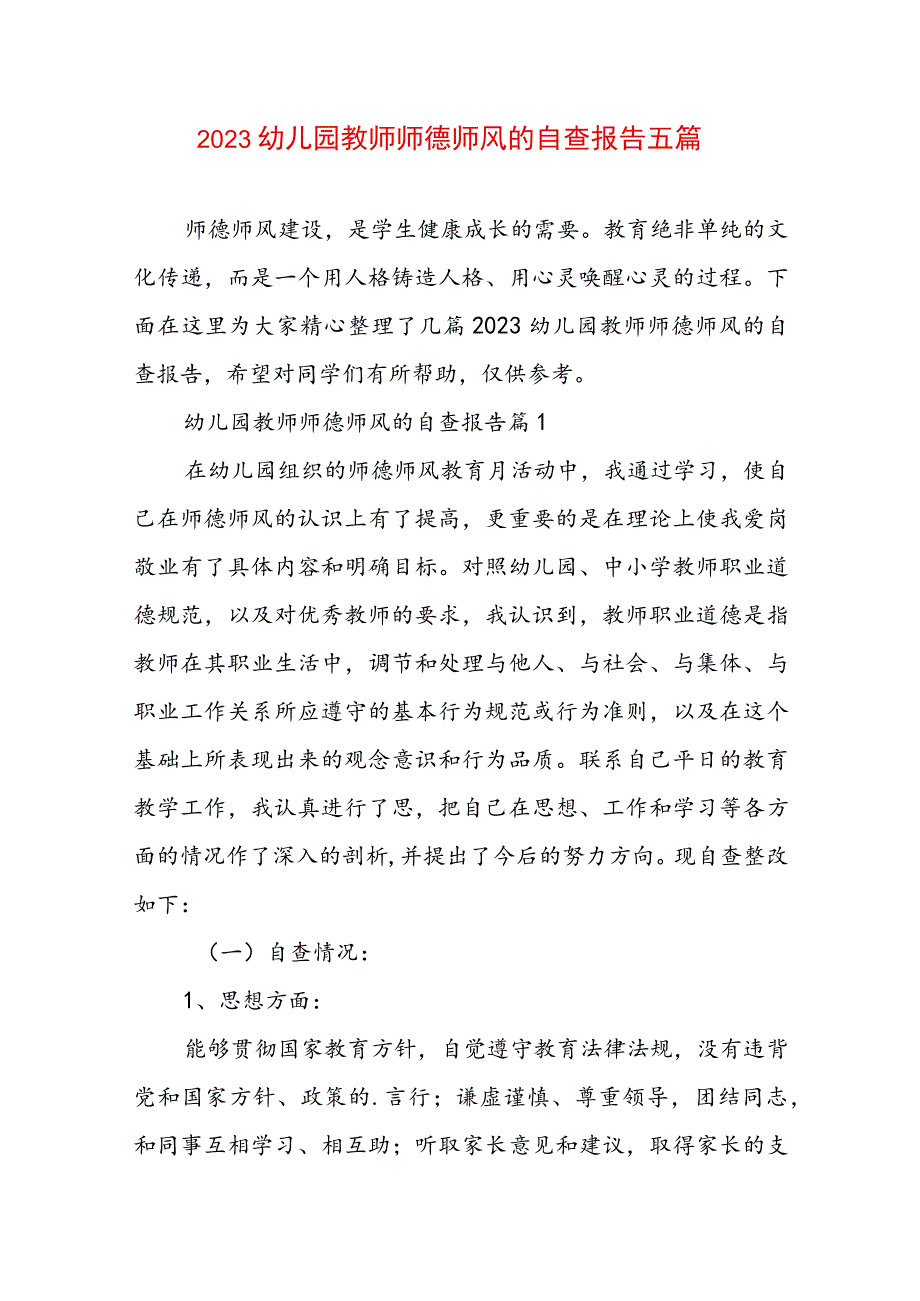 2023幼儿园教师师德师风的自查报告五篇
师德师风建设，是学生健康成长的需要。教育绝非单纯的文
化传递，而是一个用人格铸造人格、用心灵唤醒心灵的过程。下
面在这里为大家精心整理了几篇2023幼儿园教师师德师风的自
查报告，希望对同学们有所帮助，仅供参考。
幼儿园教师师德师风的自查报告篇1
在幼儿园组织的师德师风教育月活动中，我通过学习，使自
己在师德师风的认识上有了提高，更重要的是在理论上使我爱岗
敬业有了具体内容和明确目标。对照幼儿园、中小学教师职业道
德规范，以及对优秀教师的要求，我认识到，教师职业道德是指
教师在其职业生活中，调节和处理与他人、与社会、与集体、与
职业工作关系所应遵守的基本行为规范或行为准则，以及在这个
基础上所表现出来的观念意识和行为品质。联系自己平日的教育
教学工作，我认真进行了思，把自己在思想、工作和学习等各方
面的情况作了深入的剖析,并提出了今后的努力方向。现自查整改
如下：
（一）自查情况：
1、思想方面：
能够贯彻国家教育方针，自觉遵守教育法律法规，没有违背
党和国家方针、政策的.言行；谦虚谨慎、尊重领导，团结同志，
和同事互相学习、相互助；听取家长意见和建议，取得家长的支